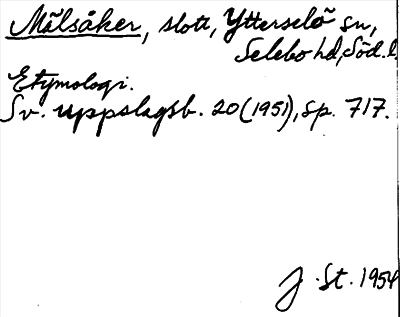 Målsåker, slott, Ytterselö sn,
Selebo hd, Söd. l.
Etymologi.
Sv. uppslagsb. 20 (1951), sp. 717.
J. St. 1954